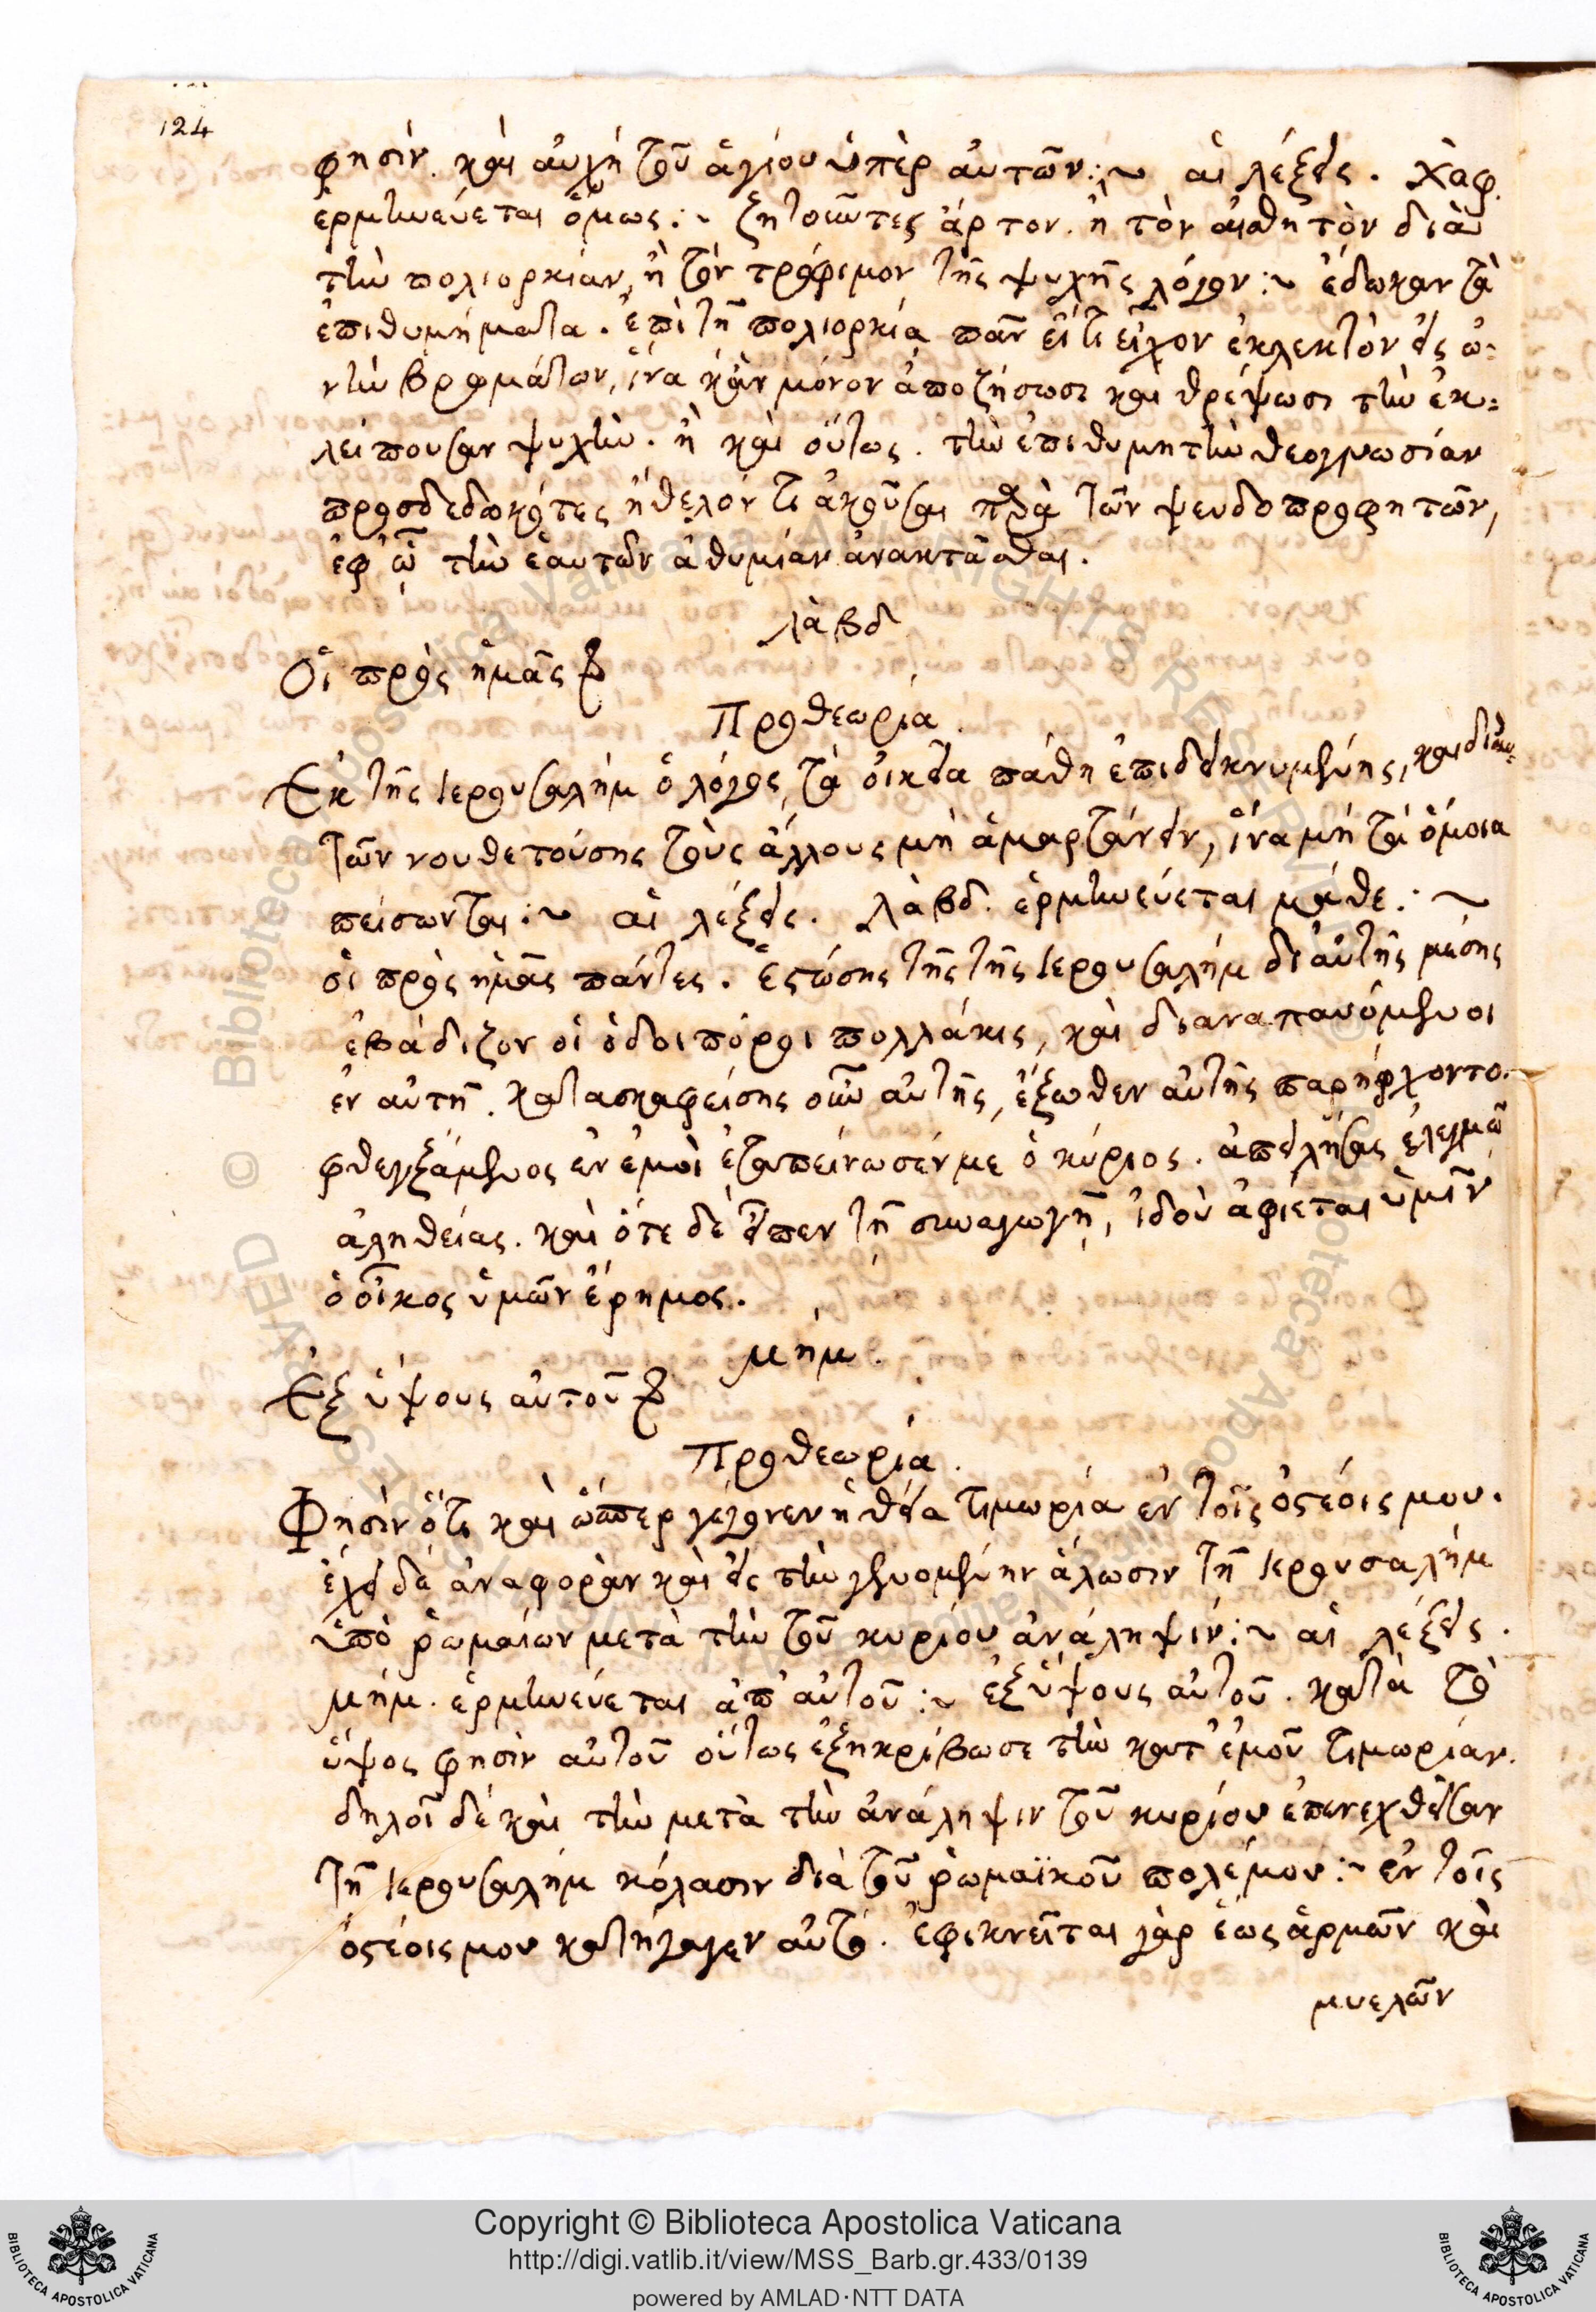 124
φησίν. καὶ αὐχὴ τοῦ ἁγίου ὑπὲρ αὐτῶν:~ αἱ λέξεις. Χὰφ.
ἑρμηνεύεται ὅμως:~ ζητοῦντες ἄρτον. ἢ τὸν αἰσθητὸν διὰ
τὴν πολιορκίαν, ἢ τὸν τρόφιμον τῆς ψυχῆς λόγον:~ ἔδωκαν τὰ
ἐπιθυμήματα. ἐπὶ τῇ πολιορκίᾳ πᾶν εἴ τι εἶχον ἐκλεκτὸν εἰς ὠ-
νὴν βρωμάτων, ἵνα κἂν μόνον ἀποζήσωσι καὶ θρέψωσι τὴν ἐκ-
λείπουσαν ψυχήν. ἢ καὶ οὕτως. τὴν ἐπιθυμητὴν θεογνωσίαν
προσδεδωκότες ἤθελόν τι ἀκοῦσαι παρὰ τῶν ψευδοπροφητῶν,
ἐφ' ᾧ τὴν ἑαυτῶν ἀθυμίαν ἀνακτᾶσθαι.
λὰβδ
Οἱ πρὸς ἡμᾶς
Προθεωρία.
Ἐκ τῆς Ἱερουσαλὴμ ὁ λόγος, τὰ οἰκεῖα πάθη ἐπιδεικνυμένης, καὶ διὰ
τῶν νουθετούσης τοὺς ἄλλους μὴ ἁμαρτάνειν, ἵνα μὴ τὰ ὅμοια
πείσωνται:~ αἱ λέξεις. Λὰβδ. ἑρμηνεύεται μάθε:~
οἱ πρὸς ἡμᾶς πάντες. ἑστώσης τῆς τῆς Ἱερουσαλὴμ δι' αὐτῆς μέσης
ἐβάδιζον οἱ ὁδοιπόροι πολλάκις, καὶ διαναπαυόμενοι
ἐν αὐτῇ. κατασκαφείσης οὖν αὐτῆς, ἔξωθεν αὐτῆς παρήρχοντο.
φθεγξάμενος ἐν ἐμοὶ ἐταπείνωσέν με ὁ κύριος. ἀπειλήσας ἐλεγμῷ
ἀληθείας. καὶ ὅτε δὲ εἶπεν τῇ συναγωγῇ, ἰδοὺ ἀφίεται ὑμῖν
ὁ οἶκος ὑμῶν ἔρημος.
μήμ.
Ἐξ ὕψους αὐτοῦ
Προθεωρία.
Φησὶν ὅτι καὶ ὥσπερ γέγονεν ἡ θεία τιμωρία ἐν τοῖς ὀστέοις μου.
ἔχει δὲ ἀναφορὰν καὶ εἰς τὴν γενομένην ἅλωσιν τῇ Ἱερουσαλὴμ
ὑπὸ ῥωμαίων μετὰ τὴν τοῦ κυρίου ἀνάληψιν:~ αἱ λέξεις.
μήμ. ἑρμηνεύεται ἀπ' αὐτοῦ:~ ἐξ ὕψους αὐτοῦ. κατὰ τὸ
ὕψος φησὶν αὐτοῦ οὕτως ἐξηκρίβωσε τὴν κατ' ἐμοῦ τιμωρίαν.
δηλοῖ δὲ καὶ τὴν μετὰ τὴν ἀνάληψιν τοῦ κυρίου ἐπενεχθεῖσαν
τῇ Ἱερουσαλὴμ κόλασιν διὰ τοῦ ῥωμαϊκοῦ πολέμου:~ ἐν τοῖς
ὀστέοις μου κατήγαγεν αὐτό. ἐφικνεῖται γὰρ ἕως ἁρμῶν καὶ
μυελῶν
Copyright © Biblioteca Apostolica Vaticana
http://digi.vatlib.it/view/MSS_Barb.gr.433/0139
powered by AMLAD·NTT DATA